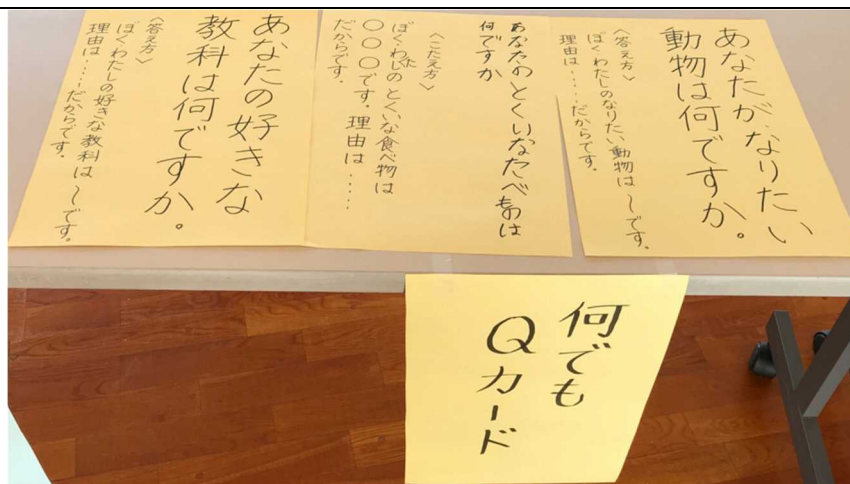 あなたがなりたい
動物は何ですか。
〈答え方〉
ぼく・わたしのなりたい動物は～です。
理由は……だからです。
あなたのとくいなたべものは
何ですか
〈こたえ方〉
ぼく・わたしのとくいな食べ物は
〇〇〇です。理由は……
だからです。
あなたの好きな
教科は何ですか。
〈答え方〉
ぼく・わたしの好きな教科は～です。
理由は……だからです。
何でも
Qカード